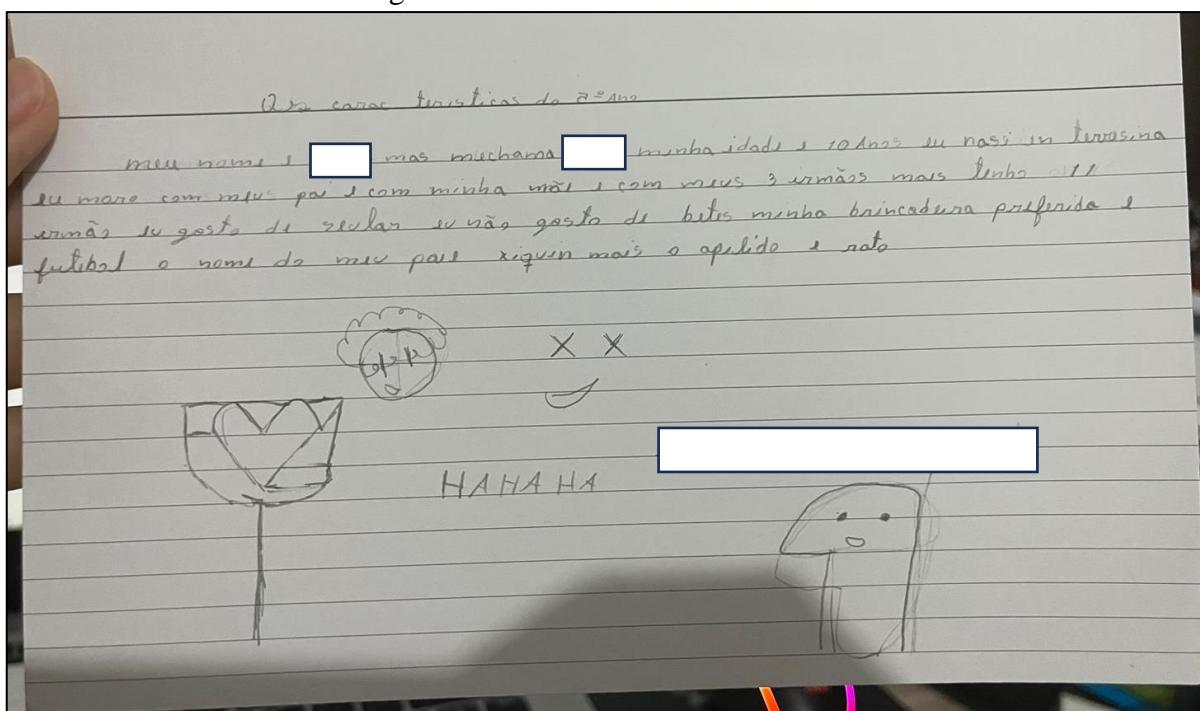 carac teristicas do 7º Ano
meu nome e mas muchama minha idade e 10 Anos eu nassi in terrosina
eu moro com meus pai e com minha mãe e com meus 3 irmãos mais tenho 11
irmão eu gosto de seular eu não gosto de betes minha brincadeira preferida e
futibol o nome do meu pai e xiquin mais o apelido e rato
HAHAHA